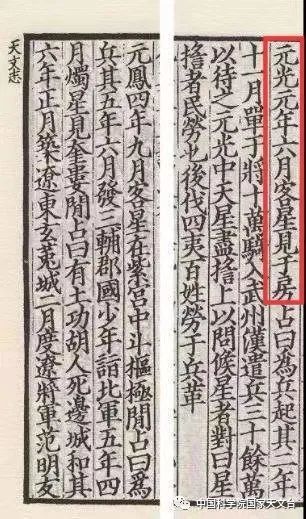 元光元年六月客星見于房占曰為兵起其二年
十一月單于將十萬騎入武州漢遣兵三十餘萬
以待之元光中天星盡搖上以問候星者對曰星
搖者民勞也後伐四夷百姓勞于兵革
元鳳四年九月客星在紫宮中斗樞極間占曰為
兵其五年六月發三輔郡國少年詣北軍五年四
月燭星見奎婁間占曰有土功胡人死邊城和其
六年正月築遼東玄菟城二月度遼將軍范明友
天文志
中国科学院国家天文台